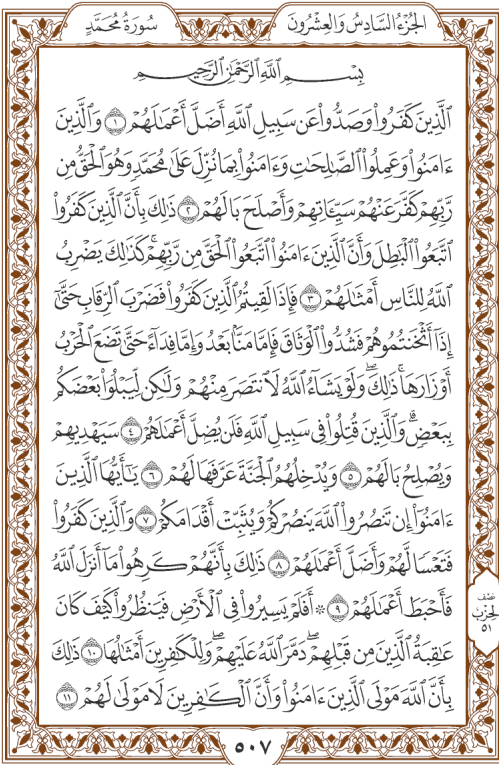 الجُزْءُ السَّادِسُ وَالعِشْرُونَ
سُورَةُ مُحَمَّدٍ
بِسْمِ ٱللَّهِ ٱلرَّحْمَٰنِ ٱلرَّحِيمِ
ٱلَّذِينَ كَفَرُواْ وَصَدُّواْ عَن سَبِيلِ ٱللَّهِ أَضَلَّ أَعْمَٰلَهُمْ ١ وَٱلَّذِينَ
ءَامَنُواْ وَعَمِلُواْ ٱلصَّٰلِحَٰتِ وَءَامَنُواْ بِمَا نُزِّلَ عَلَىٰ مُحَمَّدٖ وَهُوَ ٱلْحَقُّ مِن
رَّبِّهِمْ كَفَّرَ عَنْهُمْ سَيِّـَٔاتِهِمْ وَأَصْلَحَ بَالَهُمْ ٢ ذَٰلِكَ بِأَنَّ ٱلَّذِينَ كَفَرُواْ
ٱتَّبَعُواْ ٱلْبَٰطِلَ وَأَنَّ ٱلَّذِينَ ءَامَنُواْ ٱتَّبَعُواْ ٱلْحَقَّ مِن رَّبِّهِمْۚ كَذَٰلِكَ يَضْرِبُ
ٱللَّهُ لِلنَّاسِ أَمْثَٰلَهُمْ ٣ فَإِذَا لَقِيتُمُ ٱلَّذِينَ كَفَرُواْ فَضَرْبَ ٱلرِّقَابِ حَتَّىٰٓ
إِذَآ أَثْخَنتُمُوهُمْ فَشُدُّواْ ٱلْوَثَاقَ فَإِمَّا مَنَّۢا بَعْدُ وَإِمَّا فِدَآءً حَتَّىٰ تَضَعَ ٱلْحَرْبُ
أَوْزَارَهَاۚ ذَٰلِكَۖ وَلَوْ يَشَآءُ ٱللَّهُ لَٱنتَصَرَ مِنْهُمْ وَلَٰكِن لِّيَبْلُوَاْ بَعْضَكُم
بِبَعْضٖۗ وَٱلَّذِينَ قُتِلُواْ فِي سَبِيلِ ٱللَّهِ فَلَن يُضِلَّ أَعْمَٰلَهُمْ ٤ سَيَهْدِيهِمْ
وَيُصْلِحُ بَالَهُمْ ٥ وَيُدْخِلُهُمُ ٱلْجَنَّةَ عَرَّفَهَا لَهُمْ ٦ يَٰٓأَيُّهَا ٱلَّذِينَ
ءَامَنُوٓاْ إِن تَنصُرُواْ ٱللَّهَ يَنصُرْكُمْ وَيُثَبِّتْ أَقْدَامَكُمْ ٧ وَٱلَّذِينَ كَفَرُواْ
فَتَعْسٗا لَّهُمْ وَأَضَلَّ أَعْمَٰلَهُمْ ٨ ذَٰلِكَ بِأَنَّهُمْ كَرِهُواْ مَآ أَنزَلَ ٱللَّهُ
فَأَحْبَطَ أَعْمَٰلَهُمْ ٩ ۞ أَفَلَمْ يَسِيرُواْ فِي ٱلْأَرْضِ فَيَنظُرُواْ كَيْفَ كَانَ
عَٰقِبَةُ ٱلَّذِينَ مِن قَبْلِهِمْۖ دَمَّرَ ٱللَّهُ عَلَيْهِمْۖ وَلِلْكَٰفِرِينَ أَمْثَٰلُهَا ١٠ ذَٰلِكَ
بِأَنَّ ٱللَّهَ مَوْلَى ٱلَّذِينَ ءَامَنُواْ وَأَنَّ ٱلْكَٰفِرِينَ لَا مَوْلَىٰ لَهُمْ ١١
نصف
الحزب
٥١
٥٠٧